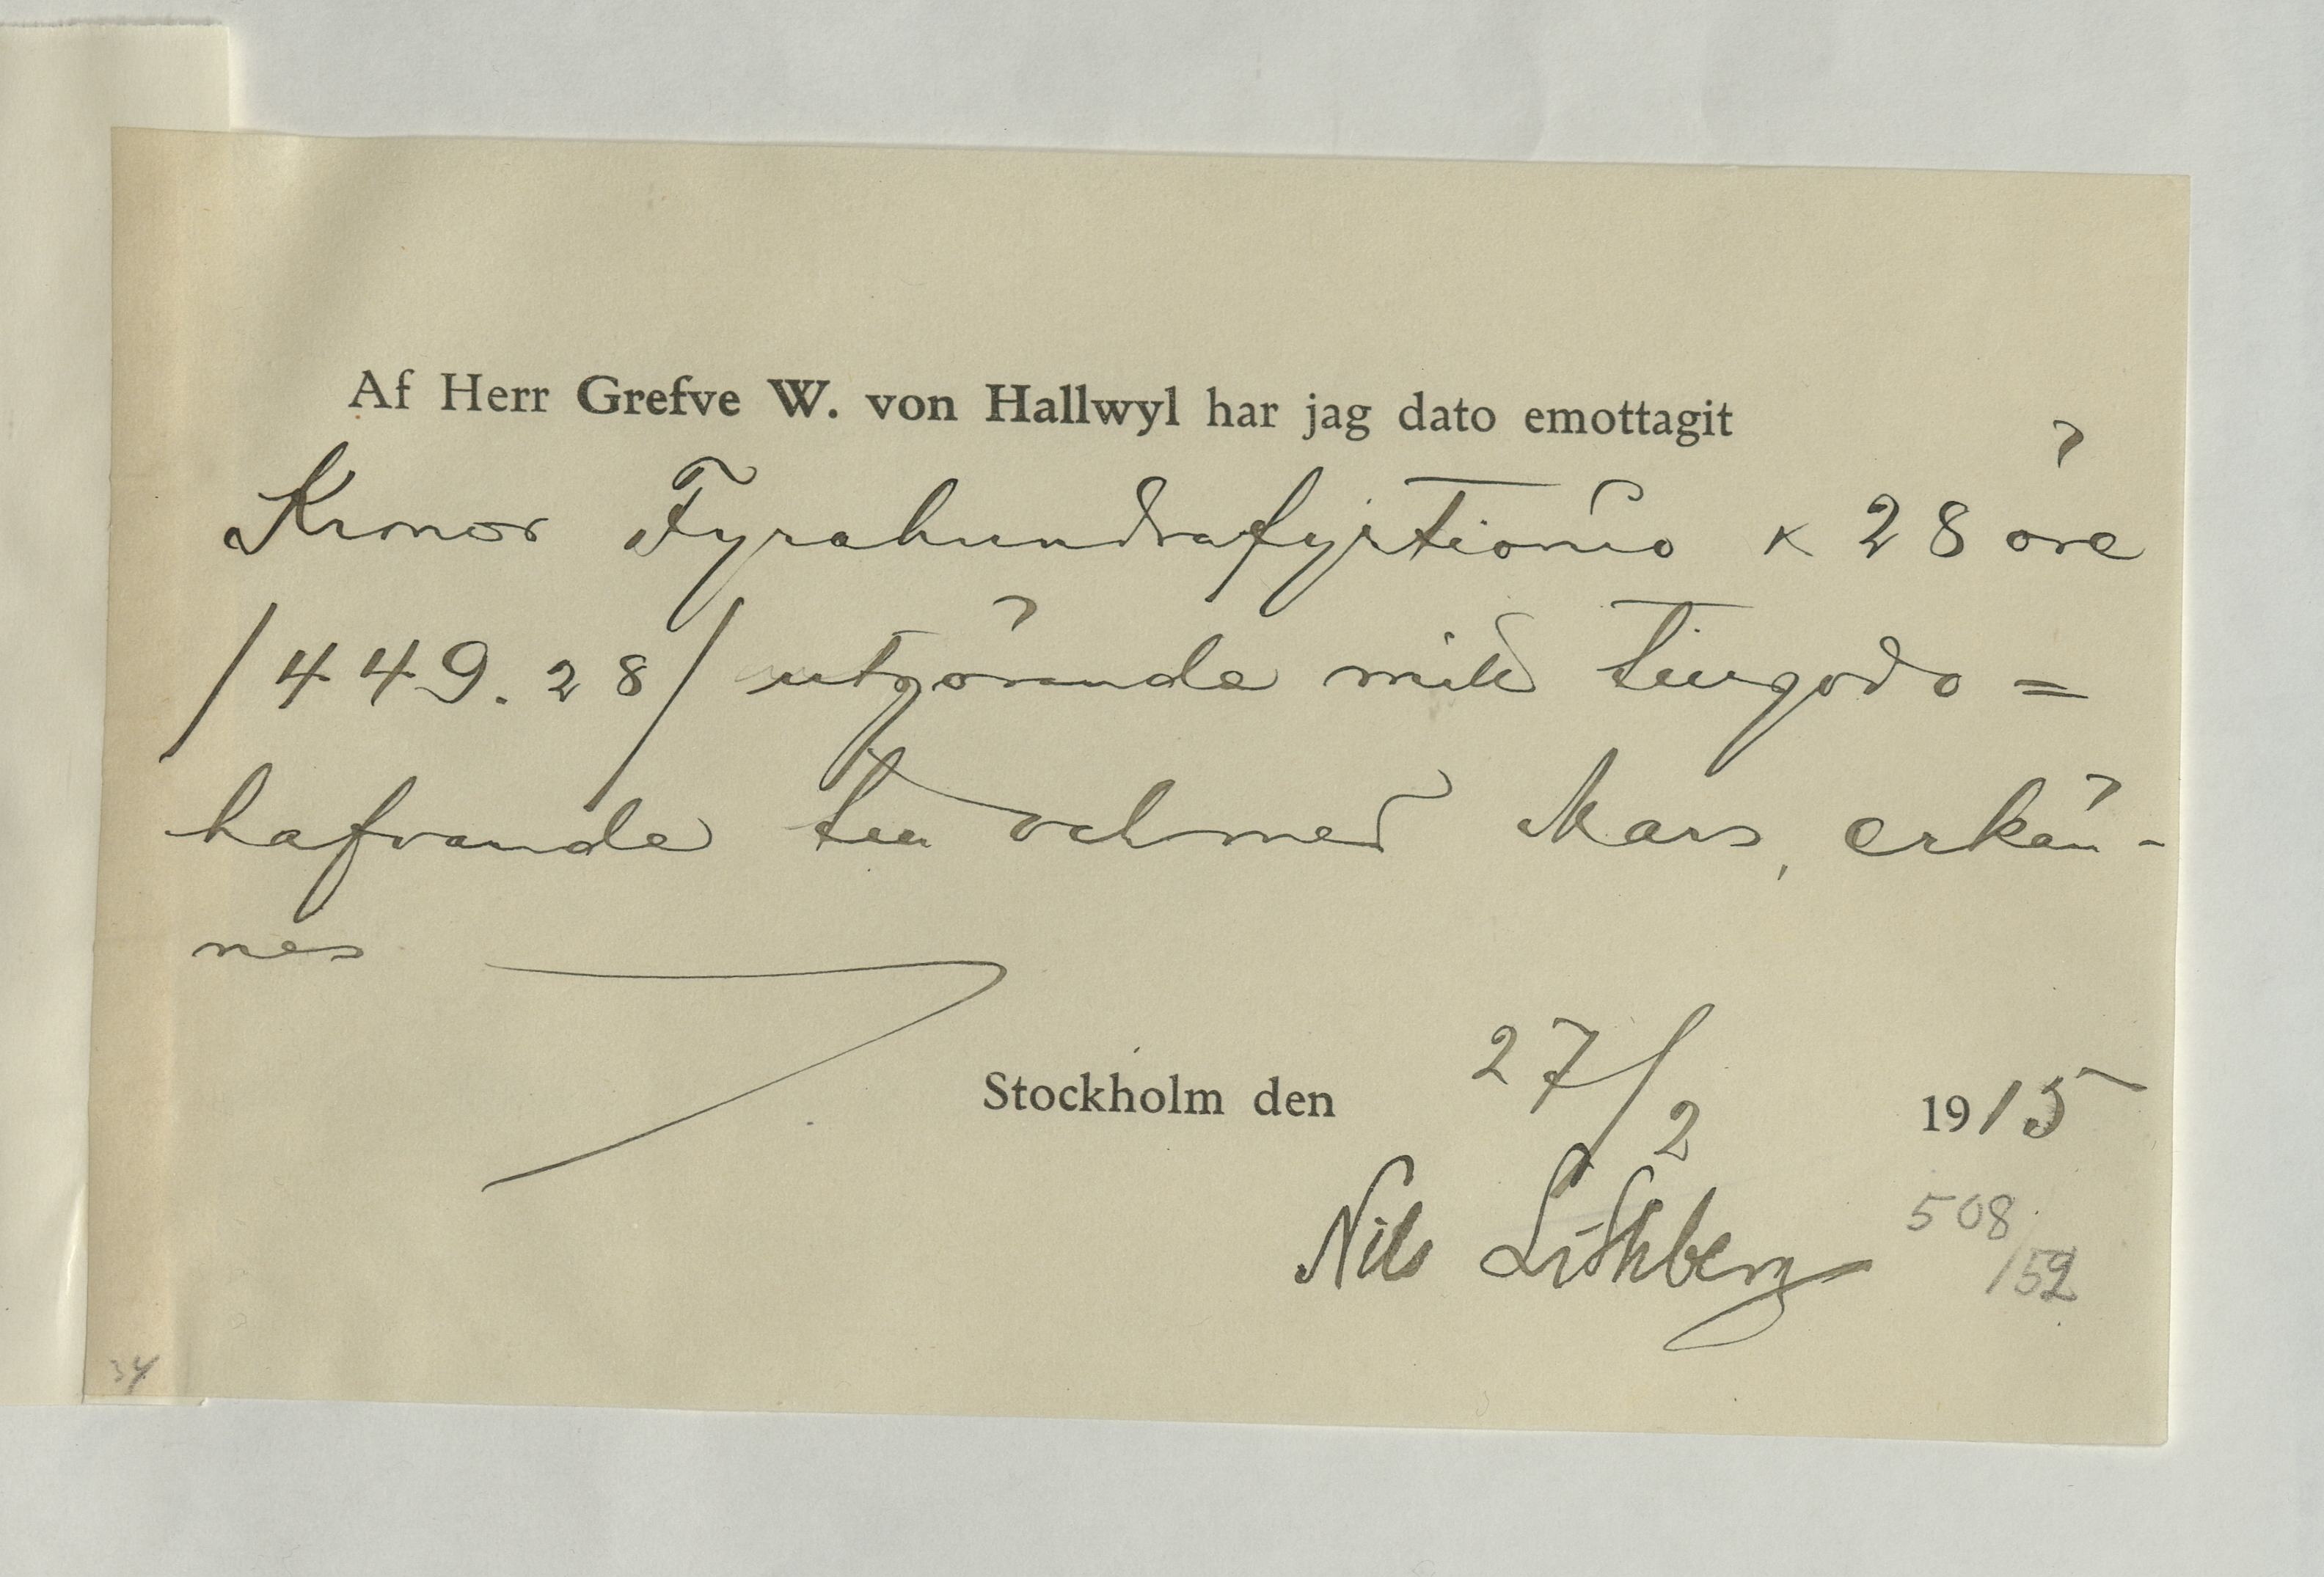 Af Herr Grefve W. von Hallwyl har jag dato emottagit
Kronor Fyrahundrafyrtionio & 28 öre
/449.28/ utgörande mitt tillgodo=
hafvande till och med Mars, erkän-
nes
Stockholm den 27/2 1915
Nils Lithberg
508/52
34